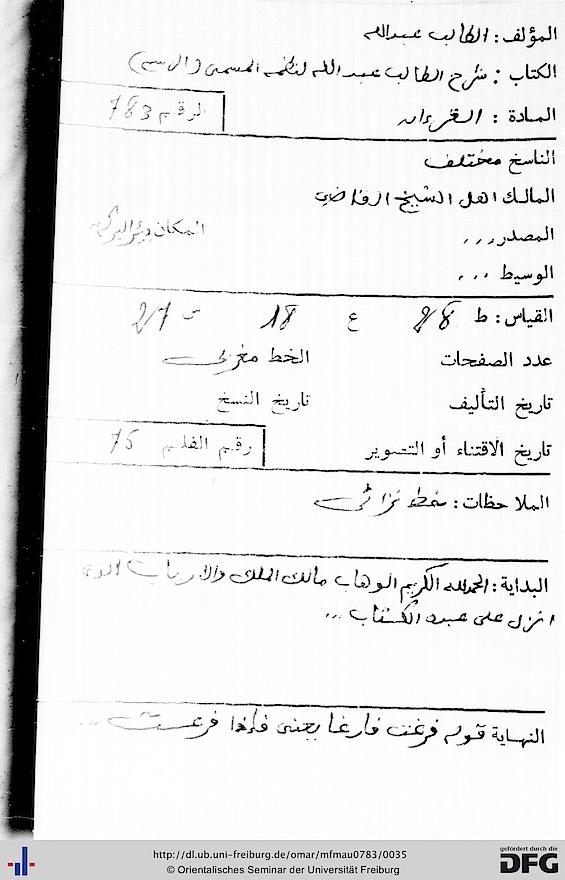 المؤلف : الطالب عبد الله
الكتاب : شرح الطالب عبد الله لنظمه المسمى (الرسم)
المادة : القرءان
الرقم 783
الناسخ مختلف
المالك اهل الشيخ القاضي
المصدر ...
المكان
الوسيط ...
القياس : ط 28 ع 18 س 27
عدد الصفحات الخط مغربي
تاريخ التأليف تاريخ النسخ
تاريخ الاقتناء أو التصوير رقم الفلم 75
الملاحظات :
البداية : الحمد لله الكريم الوهاب مالك الملك والارباب الذي
انزل على عبده الكتاب ...
النهاية قوله فرغت فارغا يعني فإذا فرغت ...
http://dl.ub.uni-freiburg.de/omar/mfmau0783/0035
© Orientalisches Seminar der Universität Freiburg
gefördert durch die
DFG